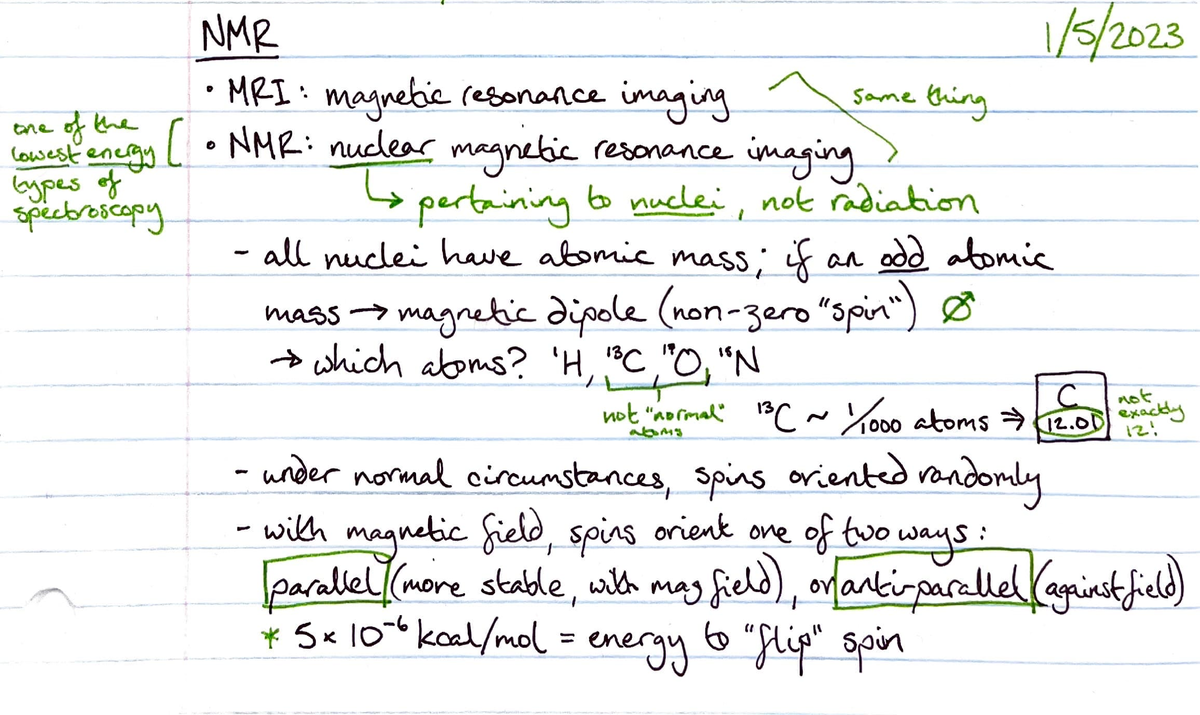 NMR
1/5/2023
• MRI: magnetic resonance imaging
same thing
one of the
lowest energy
types of
spectroscopy
• NMR: nuclear magnetic resonance imaging
↳ pertaining to nuclei, not radiation
- all nuclei have atomic mass; if an odd atomic
mass → magnetic dipole (non-zero "spin")
→ which atoms? ¹H, ¹³C, ¹⁷O, ¹⁵N
not "normal"
atoms
¹³C ~ 1/1000 atoms ⇒
C
12.01
not
exactly
12!
- under normal circumstances, spins oriented randomly
- with magnetic field, spins orient one of two ways:
parallel (more stable, with mag field), or anti-parallel (against field)
* 5 × 10⁻⁶ kcal/mol = energy to "flip" spin